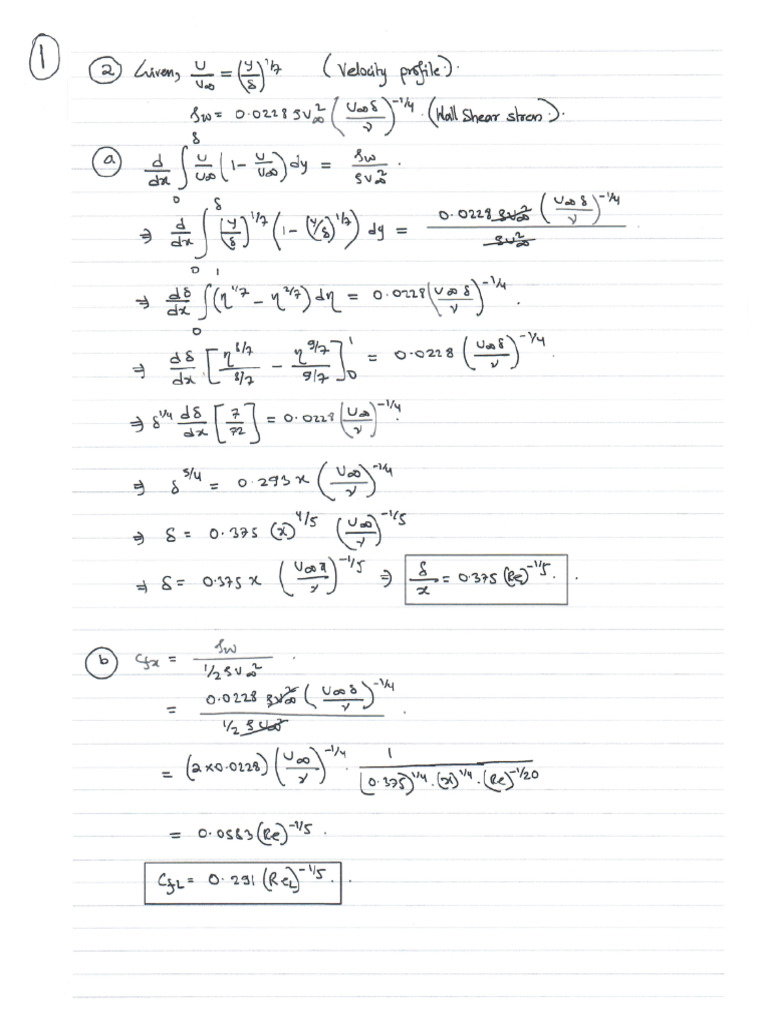 1
2 Given, U/U∞ = (y/δ)^1/7 (Velocity profile).
τw = 0.0228 ρU∞^2 (U∞δ/ν)^-1/4. (Wall Shear stress).
a d/dx ∫_0^δ U/U∞ (1 - U/U∞) dy = τw/ρU∞^2.
⇒ d/dx ∫_0^δ (y/δ)^1/7 (1 - (y/δ)^1/7) dy = 0.0228 ρU∞^2 (U∞δ/ν)^-1/4 / ρU∞^2.
⇒ dδ/dx ∫_0^1 (η^1/7 - η^2/7) dη = 0.0228 (U∞δ/ν)^-1/4.
⇒ dδ/dx [η^8/7 / 8/7 - η^9/7 / 9/7]_0^1 = 0.0228 (U∞δ/ν)^-1/4.
⇒ δ^1/4 dδ/dx [7/72] = 0.0228 (U∞/ν)^-1/4.
⇒ δ^5/4 = 0.293x (U∞/ν)^-1/4
⇒ δ = 0.375 (x)^4/5 (U∞/ν)^-1/5
⇒ δ = 0.375 x (U∞x/ν)^-1/5 ⇒ δ/x = 0.375 (Re)^-1/5.
b Cfx = τw / 1/2 ρU∞^2.
= 0.0228 ρU∞^2 (U∞δ/ν)^-1/4 / 1/2 ρU∞^2.
= (2×0.0228) (U∞/ν)^-1/4 · 1 / (0.375)^1/4 · (x)^1/4 · (Re)^-1/20
= 0.0583 (Re)^-1/5.
CfL = 0.291 (ReL)^-1/5.